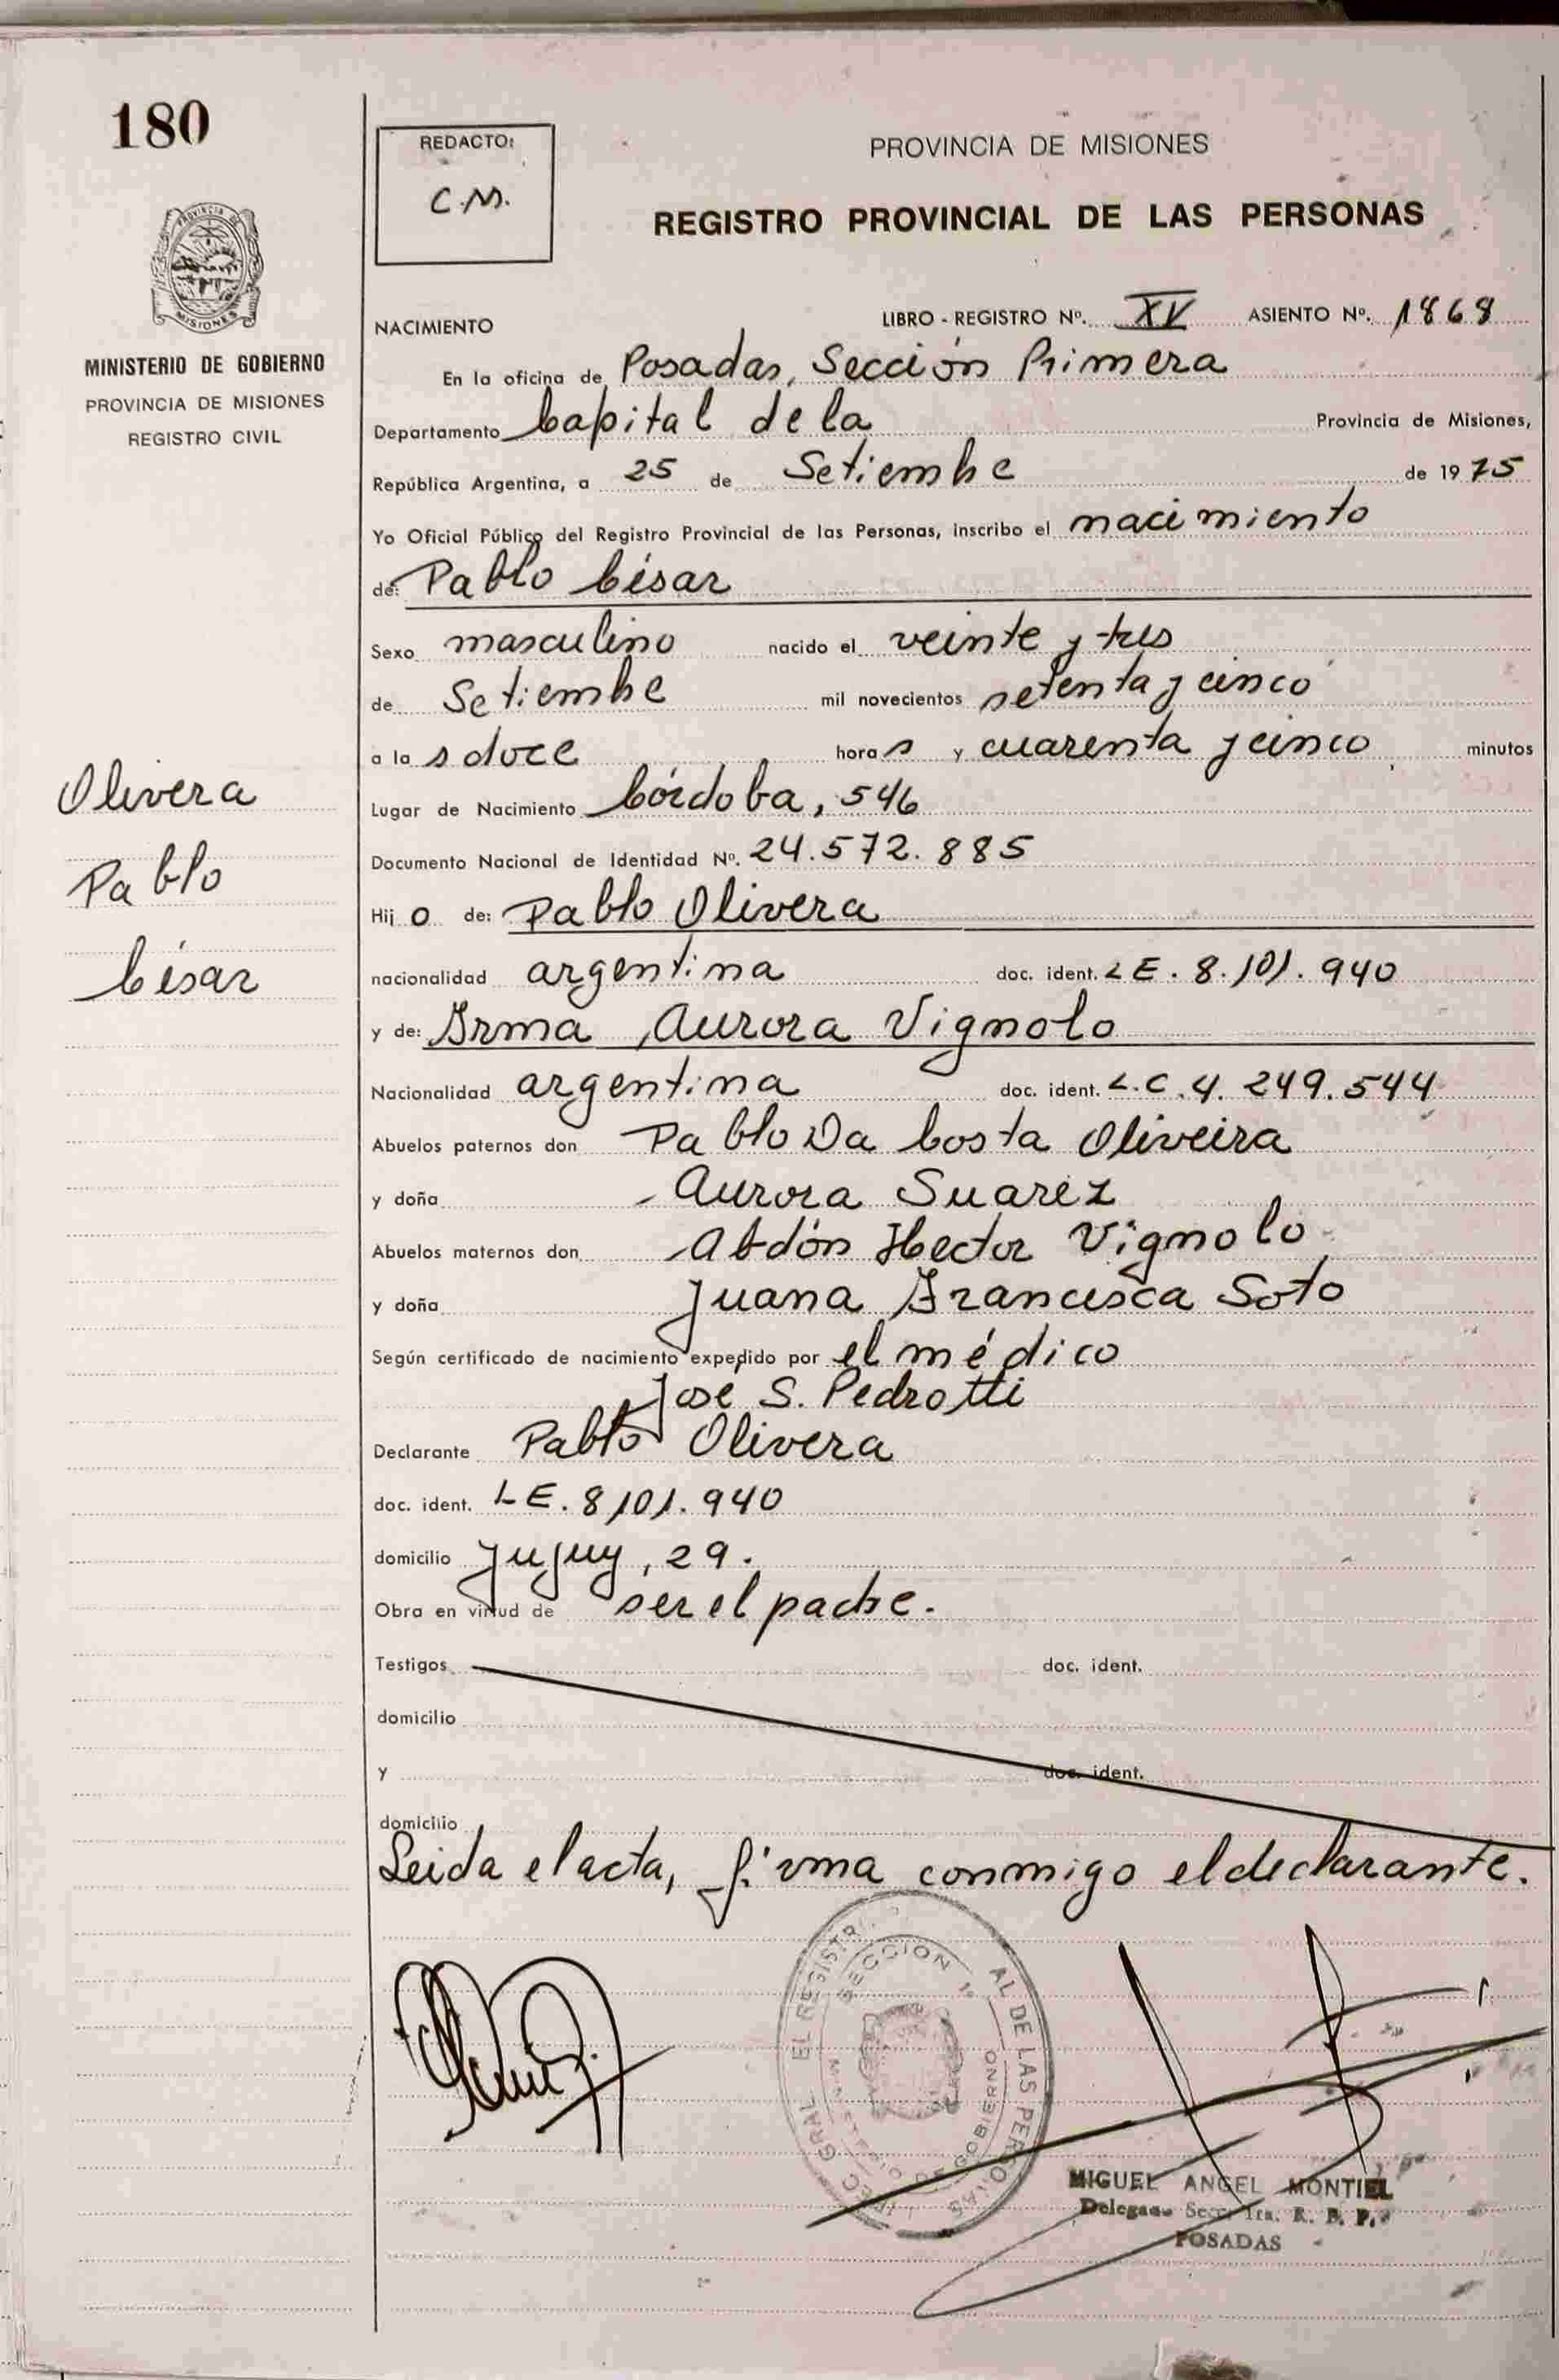 180
REDACTO:
C.M.
PROVINCIA DE MISIONES
REGISTRO PROVINCIAL DE LAS PERSONAS
PROVINCIA DE
MISIONES
MINISTERIO DE GOBIERNO
PROVINCIA DE MISIONES
REGISTRO CIVIL
NACIMIENTO LIBRO - REGISTRO Nº. XV ASIENTO Nº. 1868
En la oficina de Posadas, Sección Primera
Departamento Capital de la Provincia de Misiones,
República Argentina, a 25 de Setiembre de 1975
Yo Oficial Público del Registro Provincial de las Personas, inscribo el nacimiento
de: Pablo César
Sexo masculino nacido el veinte y tres
de Setiembre mil novecientos setenta y cinco
a la s doce hora s y cuarenta y cinco minutos
Lugar de Nacimiento Córdoba, 546
Documento Nacional de Identidad Nº. 24.572.885
Hij o de: Pablo Olivera
nacionalidad argentina doc. ident. LE. 8.101.940
y de: Irma Aurora Vignolo
Nacionalidad argentina doc. ident. L.C.4.249.544
Abuelos paternos don Pablo Da Costa Oliveira
y doña Aurora Suarez
Abuelos maternos don Abdón Hector Vignolo
y doña Juana Francisca Soto
Según certificado de nacimiento expedido por el médico
José S. Pedrotti
Declarante Pablo Olivera
doc. ident. LE. 8101.940
domicilio Jujuy, 29.
Obra en virtud de ser el padre.
Testigos doc. ident.
domicilio
y doc. ident.
domicilio
Leida el acta, firma conmigo el declarante.
Olivera
Pablo
César
SECCION 1ª
MIGUEL ANGEL MONTIEL
Delegado Secc. 1ra. R. P. P.
POSADAS